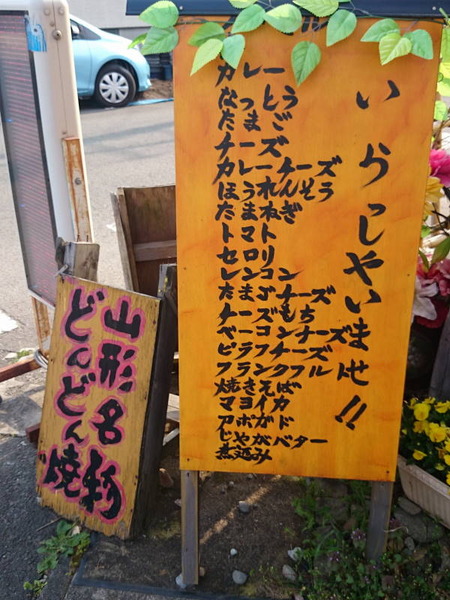 いらっしゃいませ!!
カレー
なっとう
たまご
チーズ
カレーチーズ
ほうれんそう
たまねぎ
トマト
セロリ
レンコン
たまごチーズ
チーズもち
ベーコンチーズ
ピラフチーズ
フランクフルト
焼きそば
マヨイカ
アボガド
じゃがバター
煮込み
山形名物
どんどん焼